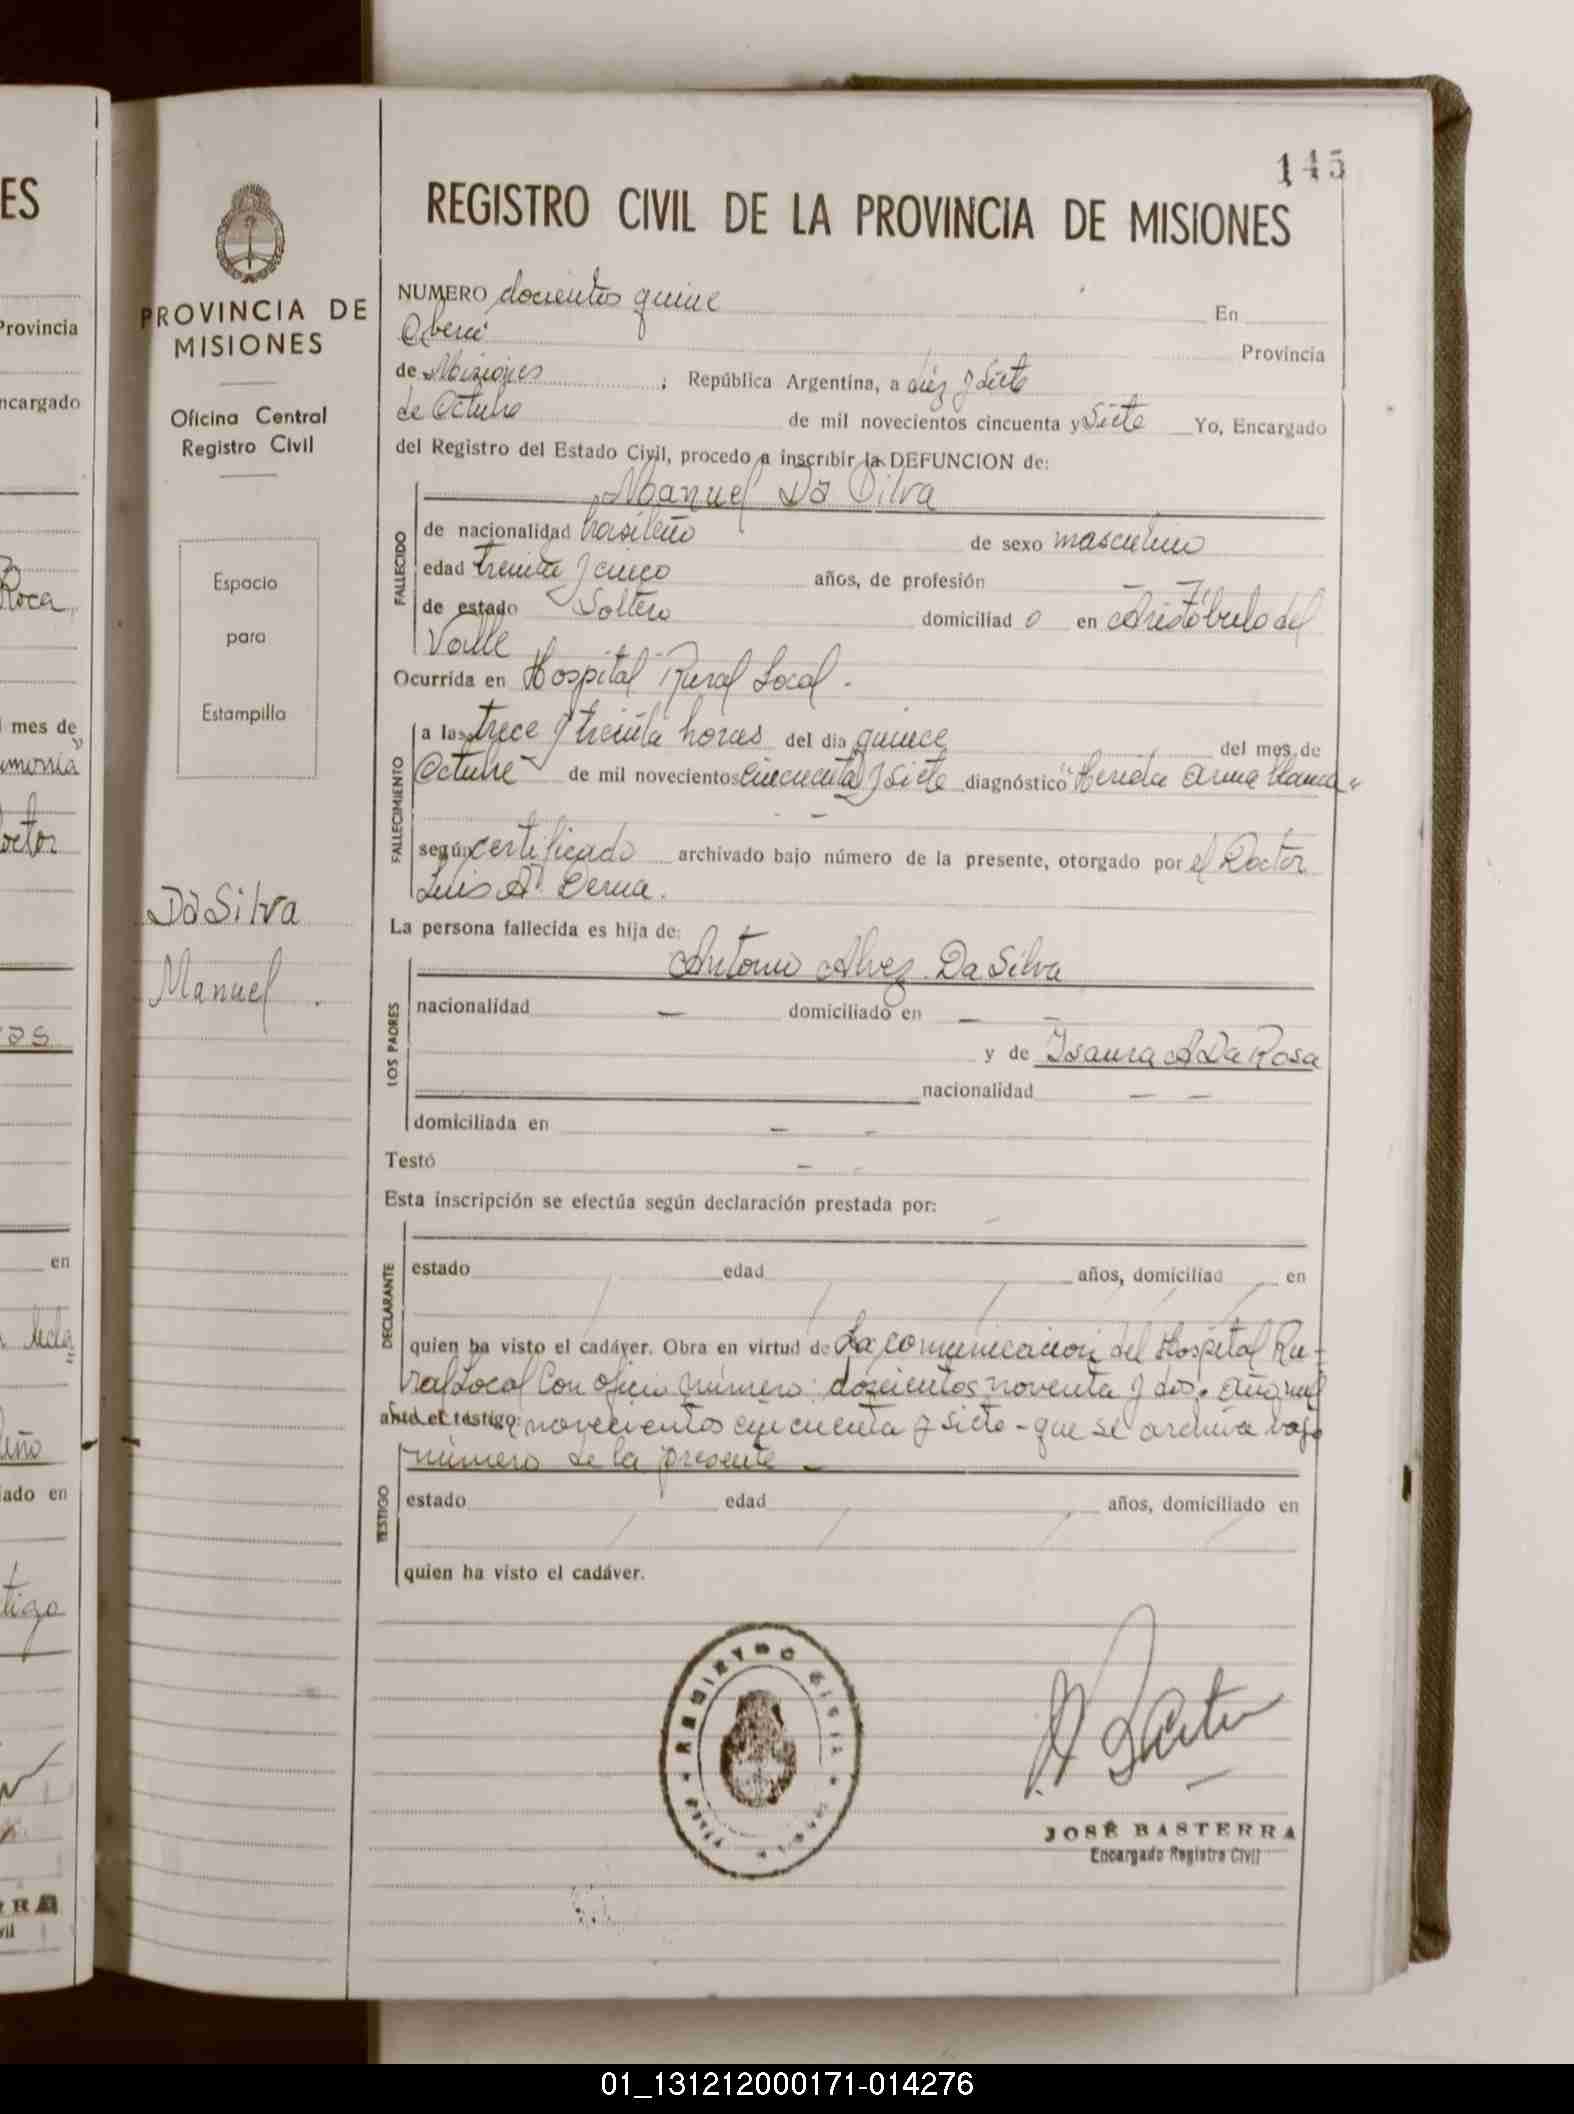 145
REGISTRO CIVIL DE LA PROVINCIA DE MISIONES
NUMERO docientos quince En
Oberá Provincia
de Misiones ; República Argentina, a diez y siete
de Octubre de mil novecientos cincuenta y Siete Yo, Encargado
del Registro del Estado Civil, procedo a inscribir la DEFUNCION de:
Manuel Da Silva
FALLECIDO
de nacionalidad brasileño de sexo masculino
edad treinta y cinco años, de profesión
de estado Soltero domiciliad o en Aristóbulo del
Valle
Ocurrida en Hospital Rural Local.
FALLECIMIENTO
a las trece y treinta horas del dia quince del mes de
Octubre de mil novecientos cincuenta y siete diagnóstico "Herida arma blanca"
según certificado archivado bajo número de la presente, otorgado por el Doctor
Luis A. Cerna.
La persona fallecida es hija de:
Antonio Alvez Da Silva
LOS PADRES
nacionalidad — domiciliado en — —
y de Isaura A Da Rosa
nacionalidad — —
domiciliada en — -
Testó — -
Esta inscripción se efectúa según declaración prestada por:
DECLARANTE
estado edad años, domiciliad en
quien ha visto el cadáver. Obra en virtud de La comunicacion del Hospital Ru-
ral Local Con oficio número: doscientos noventa y dos. año mil
ante el testigo: novecientos cincuenta y siete - que se archiva bajo
número de la presente —
TESTIGO
estado edad años, domiciliado en
quien ha visto el cadáver.
REGISTRO CIVIL
JOSÉ BASTERRA
Encargado Registro Civil
PROVINCIA DE
MISIONES
Oficina Central
Registro Civil
Espacio
para
Estampilla
Da Silva
Manuel .
ES
Provincia
ncargado
Roca
mes de
en
ado en
tigo
01_131212000171-014276